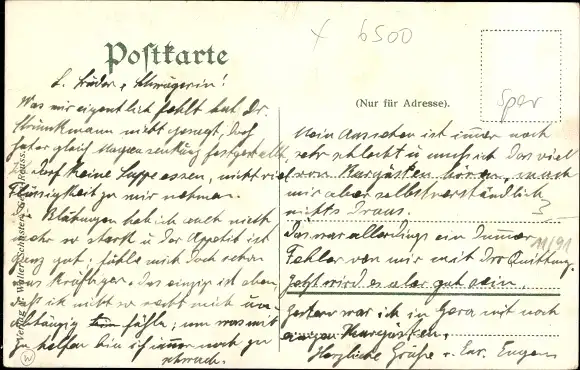 6500
Postkarte
Spor
(Nur für Adresse).
L. Bruder u. Schwägerin!
Was mir eigentlich fehlt hat Dr.
Strünkmann nicht gesagt, doch
hat er gleich Magensenkung festgestellt,
ich darf keine Suppe essen, nicht viel
Flüssigkeit zu mir nehmen.
Die Blähungen hab ich auch nicht
mehr so stark u. der Appetit ist
ganz gut; fühle mich doch schon
was kräftiger. Das einzige ist eben,
daß ich nicht so recht mich una-
bhängig fühle; um was mit
zu helfen bin ich immer noch zu
schwach.
Mein Aussehen ist immer noch
sehr schlecht u. muß ich das viel
von Kurgästen hören, mach
mir aber selbstverständlich
nichts draus.
Das war allerdings ein dummer
Fehler von mir mit der Quittung.
Jetzt wird es aber gut sein.
Gestern war ich in Gera mit noch
einigen Kurgästen.
Herzliche Grüße v. Eur. Eugen
11/91
Verlag v. Walter Schuster, Gera, Reuss.